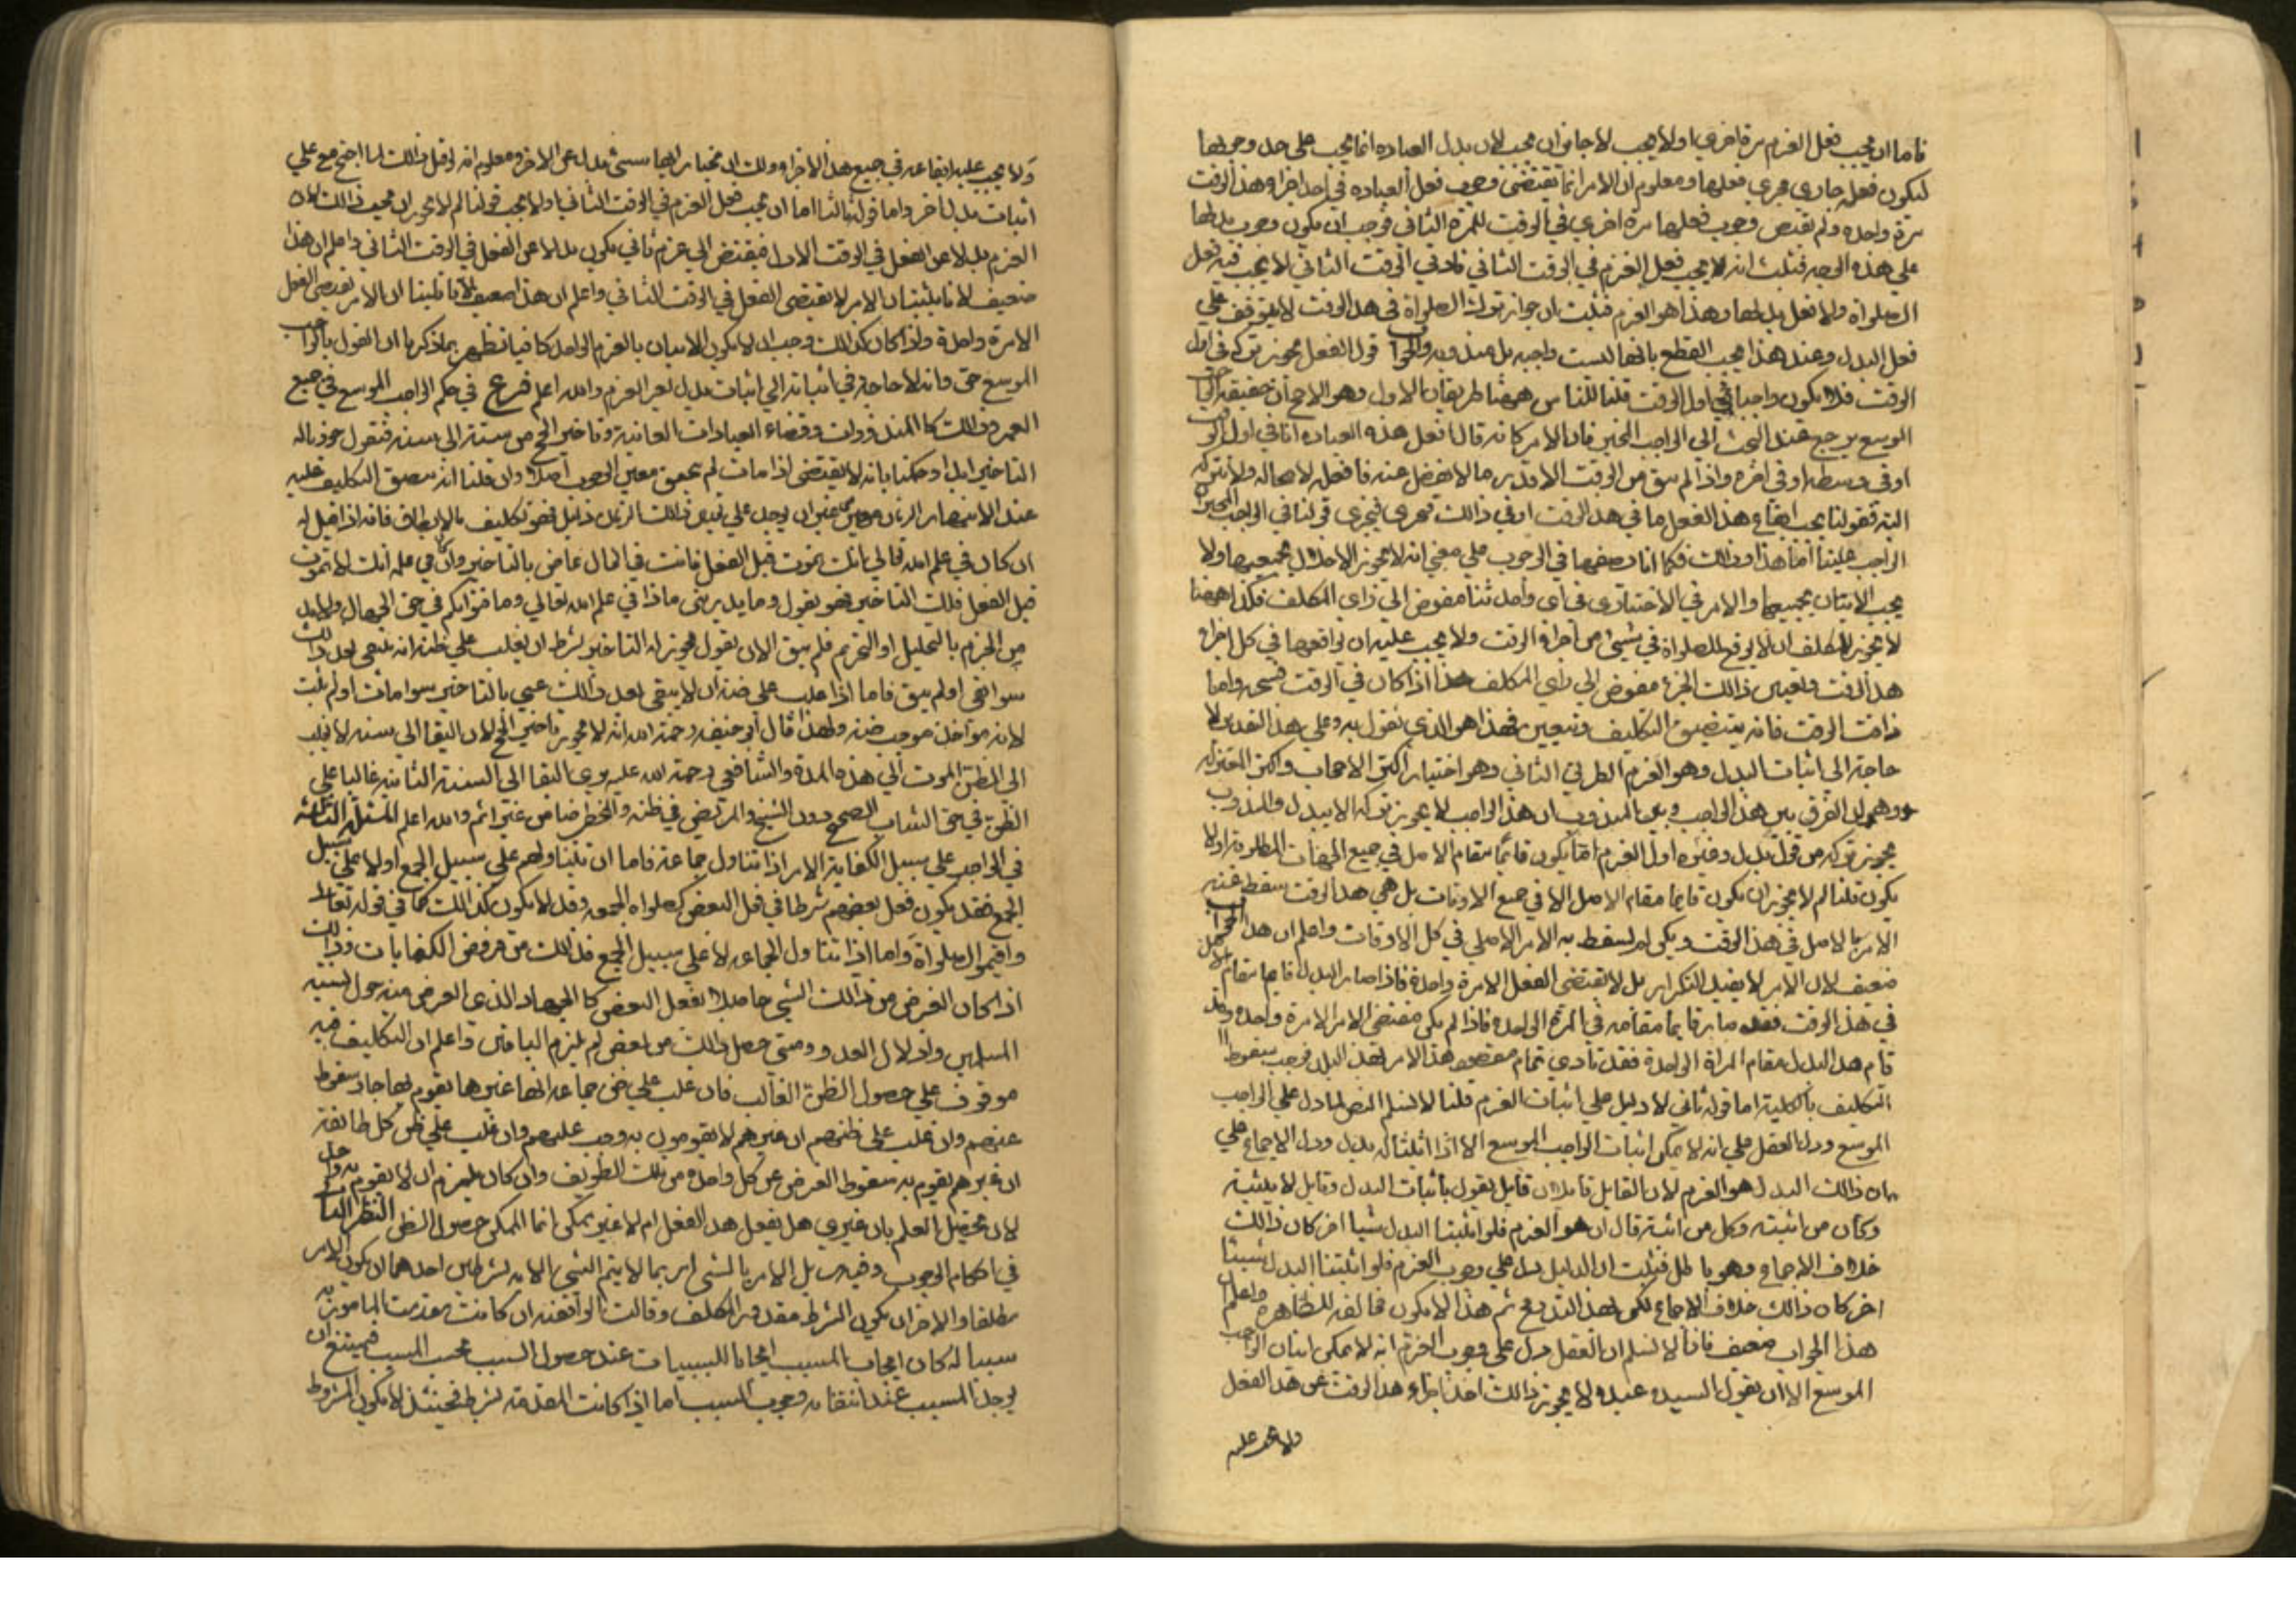 فاما ان يجب فعل العزم مرة اخري او لا يجب لا جائز ان يجب لان بدل العباده انما يجب علي حد وجوبها
ليكون فعله جاري مجري فعلها ومعلوم ان الامر انما يقتضي وجوب فعل العباده في احد اجزاء هذا الوقت
مرة واحده ولم يقتض وجوب فعلها مرة اخري في الوقت للمرة الثاني فوجب ان يكون وجوب بدلها
علي هذه الوجه فثبت انه لا يجب فعل العزم في الوقت الثاني فاذن في الوقت الثاني لا يجب فيه فعل
الصلواة ولا فعل بدلها وهذا هو العزم فثبت ان جواز ترك الصلواة في هذ الوقت لا يتوقف علي
فعل البدل وعند هذا يجب القطع بانها ليست واجبه بل مندوبه والجواب قول الفعل يجوز تركه في اول
الوقت فلا يكون واجبا في اول الوقت قلنا للناس ههنا طريقان الاول وهو الاصح ان حقيقة الواجب
الموسع يرجع عند البحث الي الواجب المخير فان الامر كانه قال افعل هذه العباده اما في اول الوقت
او في وسطه او في اخره واذا لم يبق من الوقت الا قدر ما لا يفضل عنه فافعله لا محاله ولا تتركه
البته فقولنا يجب ايقاع هذ الفعل اما في هذ الوقت او في ذالك يجري مجري قولنا في الواجب المخير
الواجب علينا اما هذا او ذالك فكما انا نصفهما في الوجوب علي معني انه لا يجوز الاخلال بجميعهما ولا
يجب الاتيان بجميعها والامر في الاختيار في اي واحد شئنا مفوض الي راي المكلف فكذا ههنا
لا يجوز للمكلف ان لا يوقع الصلواة في شيئ من اجزاء الوقت ولا يجب عليه ان يواقعها في كل اجزاء
هذ الوقت وتعيين ذالك الجزء مفوض الي راي المكلف هذا اذا كان في الوقت فسحه واما
ضاقت الوقت فانه يتضيق التكليف وتتعين فهذا هو الذي نقول به وعلي هذ التقدير لا
حاجة الي اثبات البدل وهو العزم الطريق الثاني وهو اختيار اكثر الاصحاب واكثر المعتزله
وهو ان الفرق بين هذ الواجب وبين المندوب ان هذ الواجب لا يجوز تركه الا ببدل والمندوب
يجوز تركه من غير بدل وقوله اول العزم اما يكون قائما مقام الاصل في جميع الجهات المطلوبه او لا
يكون قلنا لم لا يجوز ان يكون قايما مقام الاصل لا في جميع الاوقات بل في هذ الوقت سقط عنه
الامر بالاصل في هذ الوقت ولكن لم يسقط به الامر الاصلي في كل الاوقات واعلم ان هذ الجواب
ضعيف لان الامر لا يفيد التكرار بل لا يقتضي الفعل الا مرة واحدة فاذا صار البدل قايما مقام الاصل
في هذ الوقت فقد صار قايما مقامه في المرة الواحده فاذا لم يكن مقتضي الامر الا مرة واحده وقد
قام هذ البدل مقام المراة الواحدة فقد تادي تمام مقصود هذ الامر بهذ البدل فوجب سقوط
التكليف بالكلية اما قوله ثاني لا دليل علي اثبات العزم قلنا لا نسلم النص لما دل علي الواجب
الموسع ودل العقل علي انه لا يمكن اثبات الواجب الموسع الا اذا اثبتنا له بدل ودل الاجماع علي
ان ذالك البدل هو العزم لان القايل قايلان قايل يقول باثبات البدل وقايل لا يثبته
وكان من اثبته وكل من اثبته قال ان هو العزم فلو اثبتنا البدل شيا اخر كان ذالك
خلاف الاجماع وهو باطل فثبت ان الدليل دل علي وجوب العزم فلو اثبتنا البدل شيئا
اخر كان ذالك خلاف الاجماع لكن لهذ التدفع ثم هذا لا يكون مخالفه للظاهره واعلم
هذا الجواب ضعيف فانا لا نسلم ان العقل دل علي وجوب العزم انه لا يمكن اتيان الواجب
الموسع الا ان يقول السيد عبده لا يجوز ذالك اخلا اجزاء هذ الوقت عن هذ الفعل
ولا يجب عليه
ولا يجب عليه ايقاعه في جميع هذ الاجزاء ولك ان تختار ايها شئ بدل عن الاخر ومعلوم انه لو قيل ذالك لما احتج مع علي
اثبات بدل اخر واما قوله ثالثا اما ان يجب فعل العزم في الوقت الثاني او لا يجب قولنا لم لا يجوز ان يجب ذالك لان
العزم بدلا عن الفعل في الوقت الاول فيفتقر الي عزم ثاني يكون بدلا عن الفعل في الوقت الثاني واعلم ان هذا
ضعيف لانا بيننا ان الامر لا يقتضي الفعل في الوقت الثاني واعلم ان هذا ضعيف لانا بيننا ان الامر يقتضي الفعل
الا مرة واحدة واذا كان كذالك وجب ان لا يكون الاتيان بالعزم الواحد كافيا فظهر بما ذكرنا ان القول بالواجب
الموسع حق وانه لا حاجة في اثباته الي اثبات بدل يعو العزم والله اعلم فرع في حكم الواجب الموسع في جميع
العمر وذالك كا المنذورات وقضاء العبادات الفائته وتاخير الحج من سنة الي سنه فنقول جوزنا له
التاخير ابدا وحكمنا بانه لا يقتضي اذا مات لم يتحقق معني الوجوب اصلا وان قلنا انه يتضيق التكليف عليه
عند الانحصار الزمان معين من غير ان يوجد علي تعين ذالك الزمن دليل فهو تكليف ما لا يطاق فانه اذا قيل له
ان كان في علم الله تعالي بانك تموت قبل الفعل فانت في الحال عاص بالتاخير وان كان في علمه انك لا تموت
قبل الفعل فلك التاخير فهو يقول وما يدريني ماذا في علم الله تعالي وما فتواكم في حق الجهال ولا بد
من الجزم بالتحليل او التحريم فلم يبق الا ان يقول يجوز له التاخير بشرط ان يغلب علي ظنه انه يبقي بعد ذالك
سوا بقي او لم يبق فاما اذا غلب علي ضنه ان لا يبقي بعد ذالك عصي بالتاخير سوا مات او لم يمت
لانه مواخذ بموجب ضنه ولهذا قال ابي حنيفه رحمة الله انه لا يجوز تاخير الحج لان البقا الي سنه لا يغلب
الي الظن الموت الي هذه المدة والشافعي رحمة الله عليه يري البقا الي السنة الثانيه غالبا علي
الظن في حق الشاب الصحيح دون الشيخ والمريض في ظنه والخطر ضامن غير اثم والله اعلم المسئلة الثالثه
في الواجب علي سبيل الكفاية الامر اذا تناول جماعة فاما ان يتناولهم علي سبيل الجمع او لا علي سبيل
الجمع فقد يكون فعل بعضهم شرطا في فعل البعض كصلواة الجمعه وقد لا يكون كذالك كما في قوله تعالي
واقيموا الصلواة واما اذا تناول الجماعه لا علي سبيل الجمع فذلك من فروض الكفايات وذالك
اذا كان الغرض من ذالك الشي حاصلا بفعل البعض كا الجهاد الذي الغرض منه
المسلمين واذلال العدو ومتي حصل ذالك من بعض لم يلزم الباقين واعلم ان التكليف فيه
موقوف علي حصول الظن الغالب فان غلب علي ظن جماعه انها غيرها يقوم بها جاز سقوط
عنهم وان غلب علي ظنهم ان غيرهم لا يقومون به وجب عليهم وان غلب علي ظن كل طائفة
ان غيرهم يقوم به سقوط الفرض عن كل واحد من تلك الطوايف وان كان يلزم ان لا يقوم به واحد
لان تحصيل العلم بان غيري هل يفعل هذ الفعل ام لا غير ممكن انما الممكن حصول الظن النظر الثاني
في احكام الوجوب وفيه مسايل الامر بالشي امر بما لا يتم الشي الا به بشرطين احدهما ان يكون الامر
مطلقا والاخر ان يكون الشرط مقدور المكلف وقالت الواقفيه ان كانت مقدمت المامور به
سببا له كان ايجاب المسبب ايجابا للسببيات عند حصول السبب يجب المسبب فيمتنع ان
يوجد المسبب عند انتفا به وجوب المسبب اما اذا كانت المقدمة شرط فحينئذ لا يكون المشروط